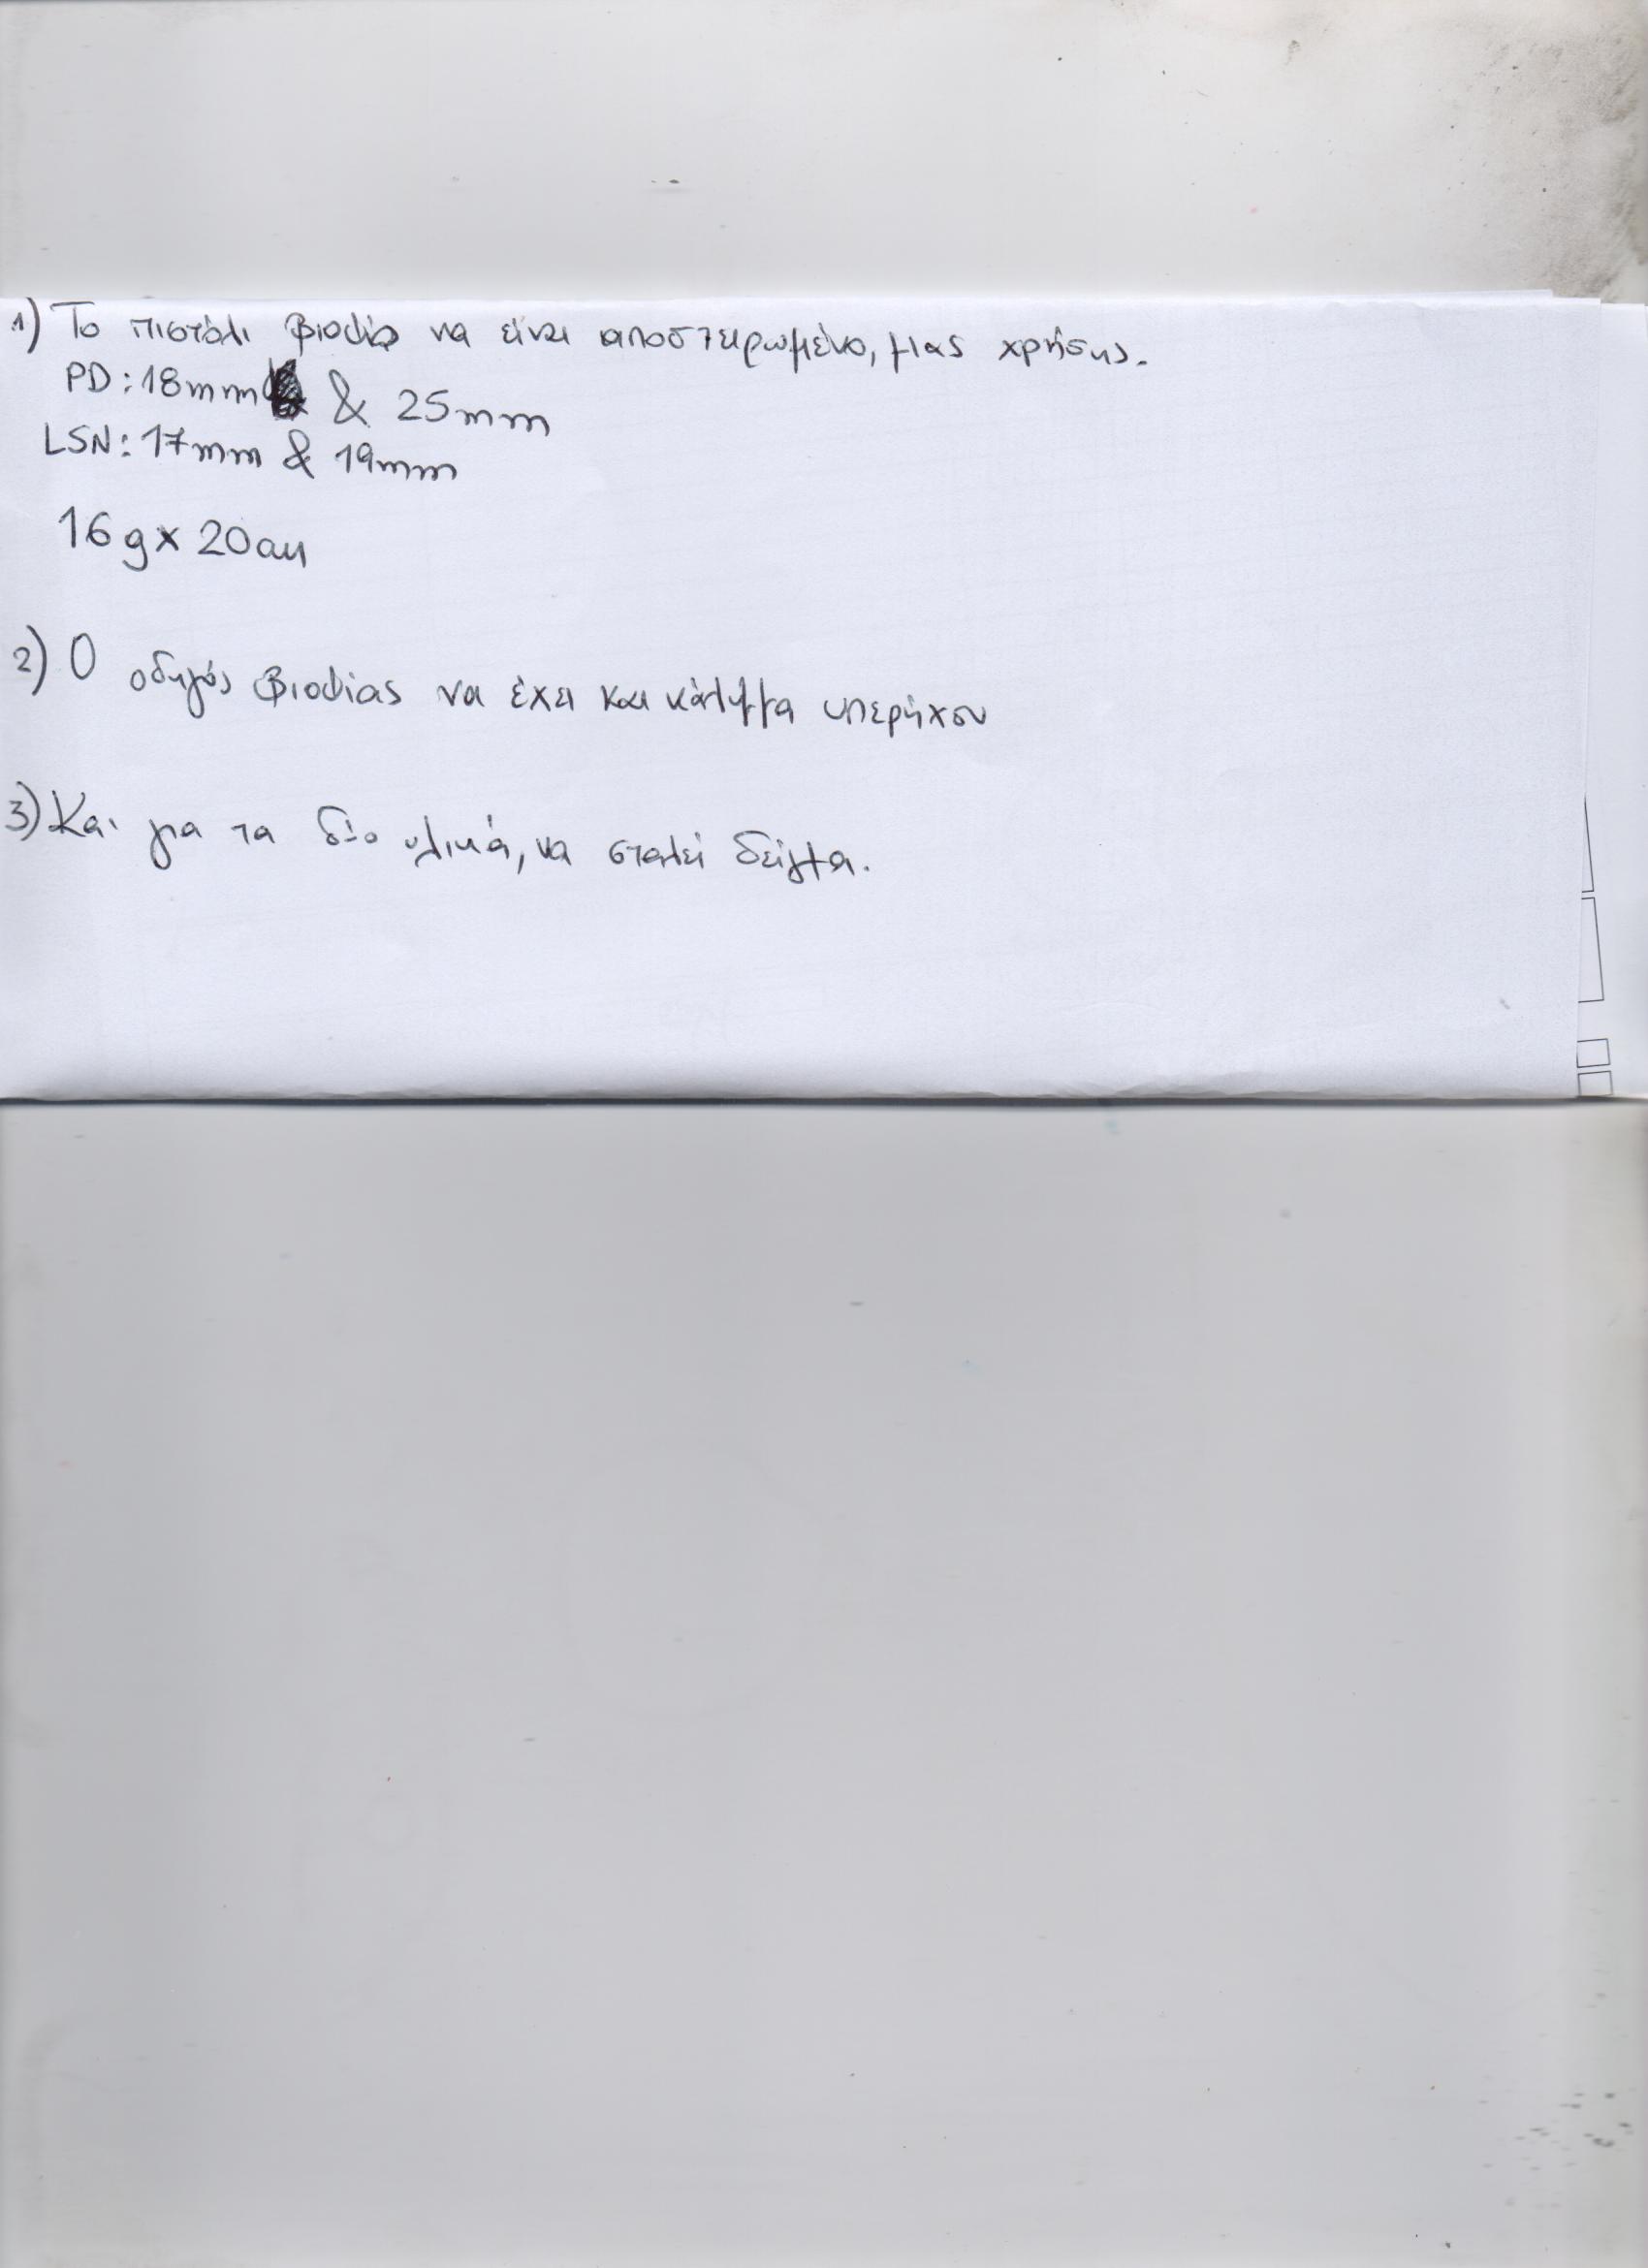 1) Το πιστόλι βιοψίας να είναι αποστειρωμένο, μιας χρήσης.
PD: 18mm & 25mm
LSN: 17mm & 19mm
16g x 20cm
2) Ο οδηγός βιοψίας να έχει και κάλυμμα υπερήχου
3) Και για τα δύο υλικά, να σταλεί δείγμα.